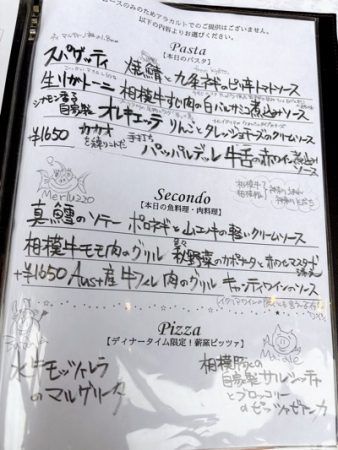 コースのみのためアラカルトでのご提供はございません。
以下の内容よりお選びください。
Pasta
【本日のパスタ】
スパゲッティ 焼鯖と九条ネギのピリ辛トマトソース
生リガトーニ 相模牛すじ肉の白バルサミコ煮込みソース
シナモン香る自家製 オレキエッテ りんごとタレッジョチーズのクリームソース
+¥1650 カカオを練りこんだ 手打ち パッパルデッレ 牛舌の赤ワイン煮込みソース
Secondo
【本日の魚料理・肉料理】
Merluzzo
真鱈のソテー ポロネギと山エノキの軽いクリームソース
相模牛モモ肉のグリル 秋野菜のカポナータとホールマスタード添え
+¥1650 Aust産 牛フィレ肉のグリル キャンティワインのソース
Pizza
【ディナータイム限定！薪窯ピッツァ】
Maiale
水牛モッツァレラ
のマルゲリータ
相模豚の
自家製サルシッチャ
とブロッコリー
のピッツァビアンカ